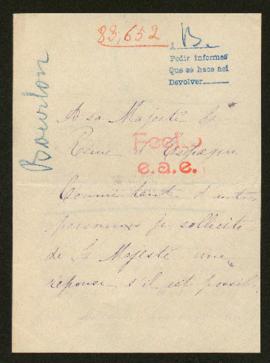 83,652
B.
Pedir informes
Que se hace nei
Devolver
Bourlon
A sa Majesté la
Reine d'Espagne
Feet.
e.a.e.
d'autres
personnes je sollicite
de Sa Majesté une
réponse s'il est possible